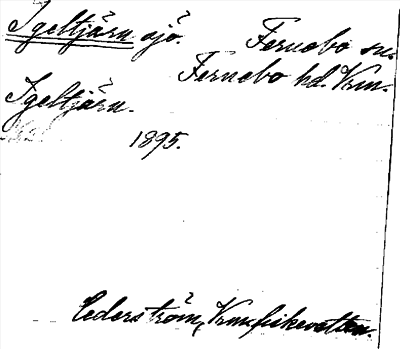 Igeltjärn sjö. Fernebo sn.
Fernebo hd. Vrm.
Igeltjärn.
1895.
Cederström, Vrm fiskevatten.